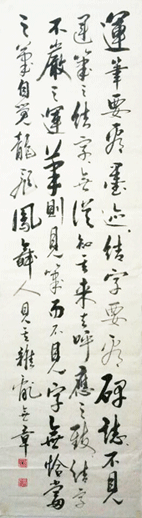 運筆要看墨迹結字要看碑誌不見
運筆之結字无從知其来去呼應之致結字
不嚴之運筆則見筆而不見字無恰當
之筆自覺龍飛鳳舞人見其雜亂无章